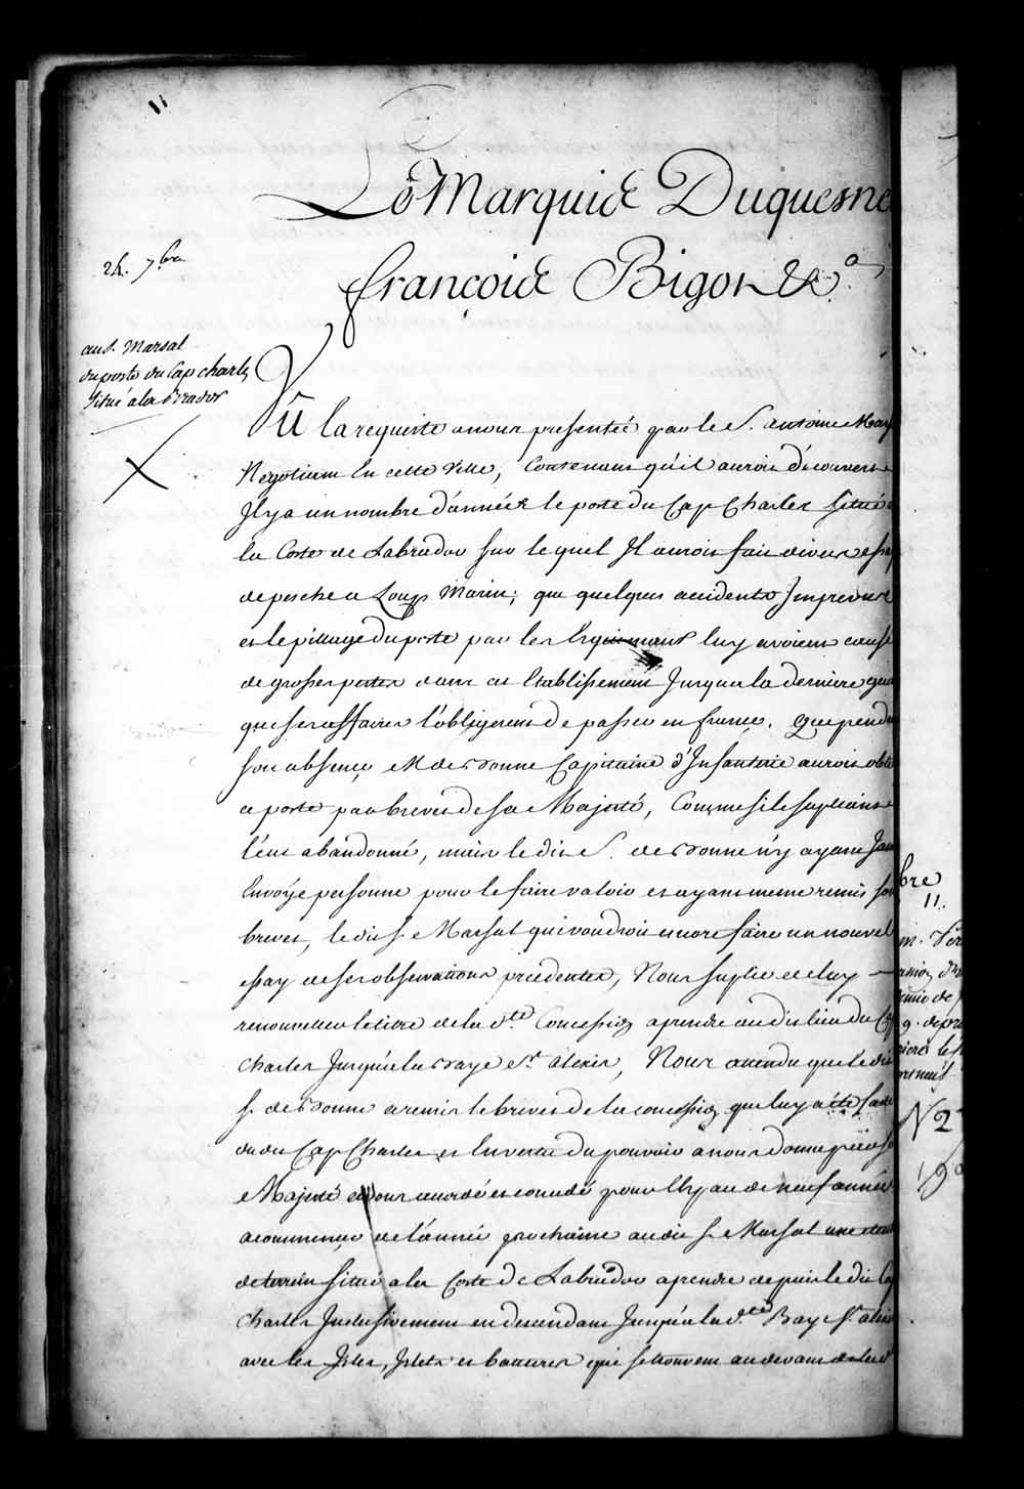 11
Le Marquis Duquesne
24. 7.bre
françois Bigot &c.a
au S. Marsal
du poste du Cap charles
situé a la brador
Vû la requeste a nous presentée par le S. antoine Mars
Negotiant En cette Ville, Contenant qu'il auroit découvert
Il y a un nombre d'années le poste du Cap Charles situé a
la Coste de Labrador sur lequel Il auroit fait divers essay
de pesche a Loups Marin; que quelques accidents Imprevus
et le pillage du poste par les luy avoient causé
de grosses pertes dans cet Etablissement Jusqu'a la derniere
que ses affaires l'obligerent de passer en france. Que pend
son absence M de Bonne Capitaine d'Infanterie auroit obte
ce poste par brevet de Sa Majesté, Comme si le supliant
l'eut abandonné, mais le dit S. de Bonne n'y ayant Jam
Envoÿé personne pour le faire valoir et ayant meme remis son
brevet, le dit S. Marsal qui voudroit encore faire un nouvel
essay de ses observations précedentes, Nous suplie de luy
renouveller le titre de la d.te Concession a prendre au dit lieu du Cap
Charles Jusqu'a la Baye S.t alexis, Nous attendu que le dit
S. de Bonne a remis le brevet de la concession que luy a été faite
du du Cap Charles et En vertu du pouvoir a nous donné par sa
Majesté avons accordé et concedé pour Espace de neuf années
a commencer de l'année prochaine au dit S. Marsal une
de terrein situé a la Coste de Labrador a prendre depuis le dit Cap
Charles Inclusivement en descendant Jusqu'a la d.te Bay S.t alexis
avec les Isles, Islets et battures qui se trouvent au devant de lad
bre
11.
N 2
19